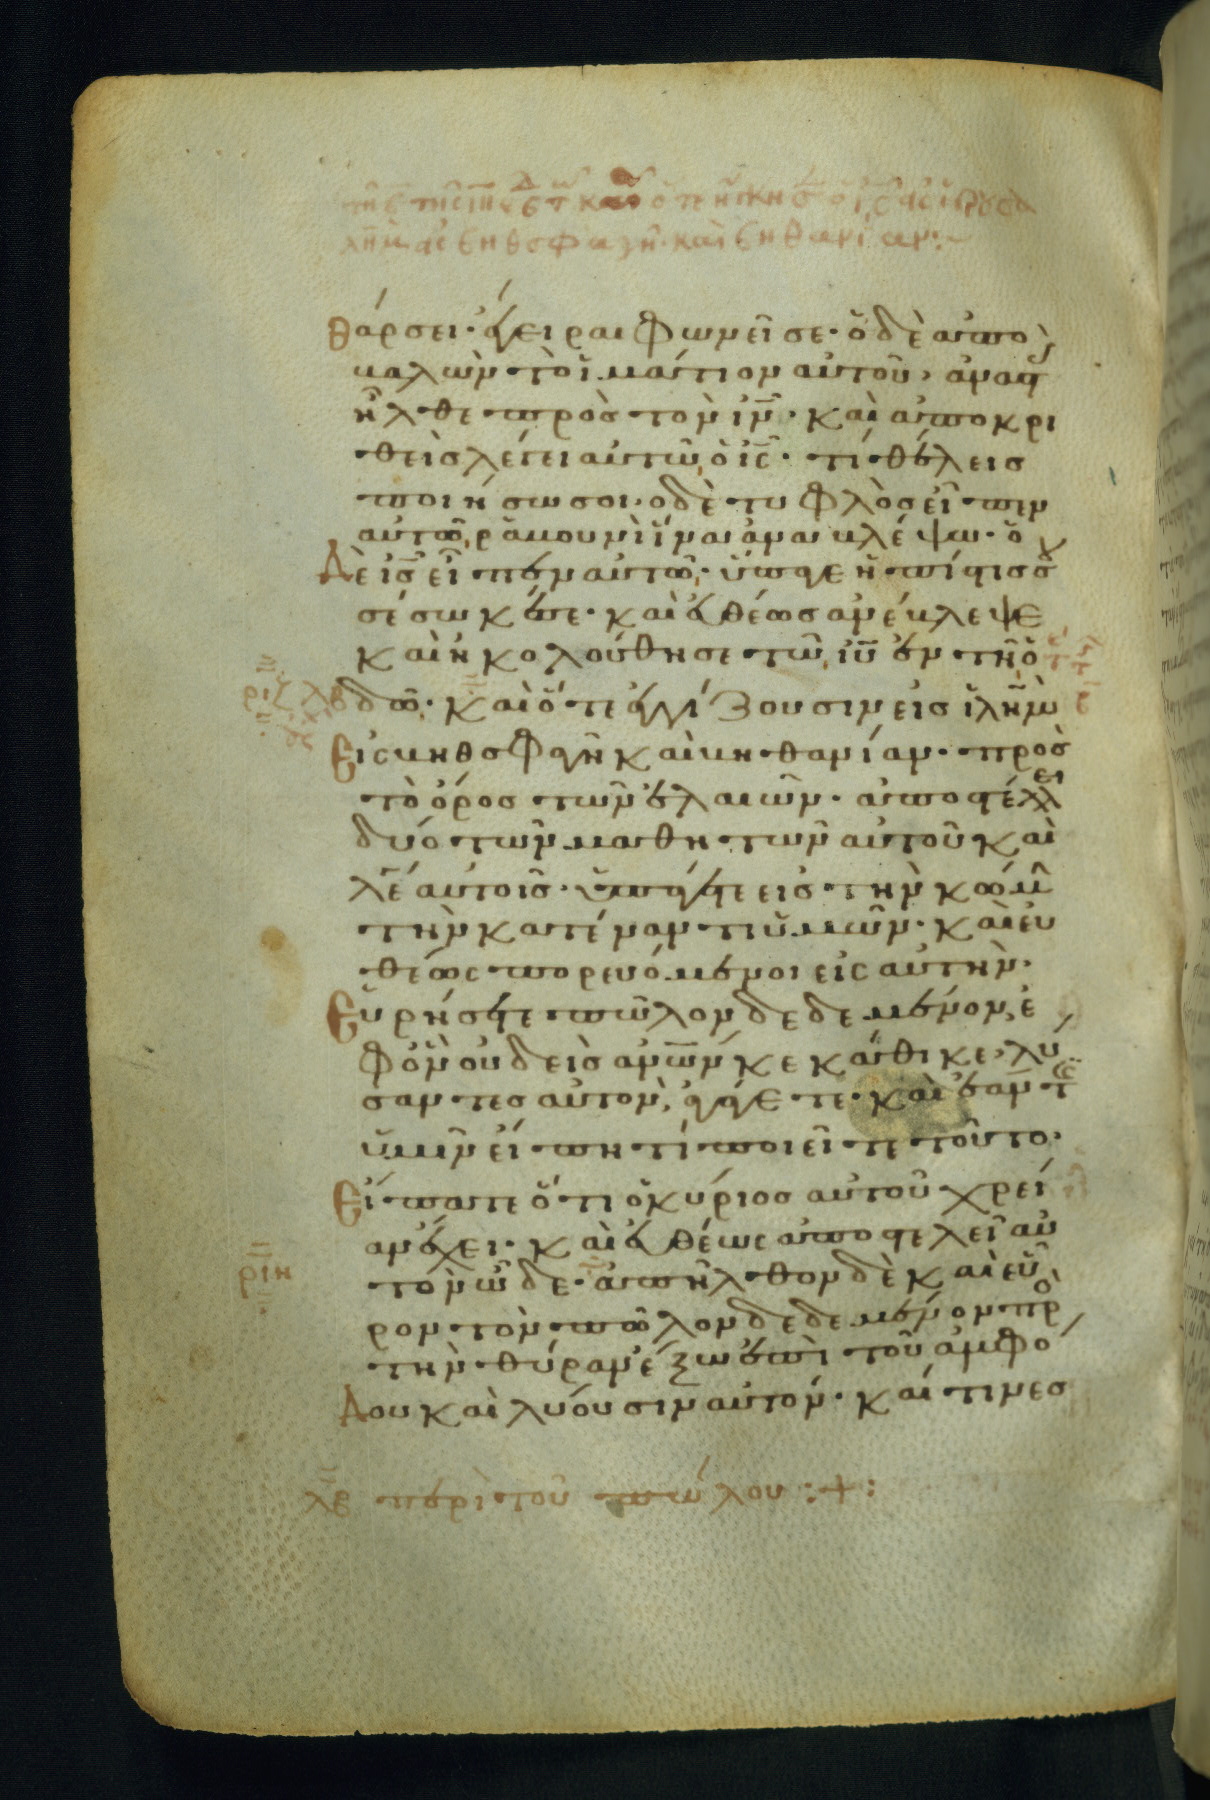 λῆμ εἰς βηθσφαγῆ. καὶ βηθανίαν:~
θάρσει· ἔγειραι φωνεῖ σε· ὁ δὲ ἀπο
βαλὼν τὸ ἱμάτιον αὐτοῦ, ἀναστ
ἦλθε πρὸς τὸν ιν̅· καὶ ἀποκρι
θεὶς λέγει αὐτῶ ὁ ις̅· τί θέλεις
ποιήσω σοι· ὁ δὲ τυφλὸς εἶπεν
αὐτῶ, ραβουνὶ ἵνα ἀναβλέψω· ὁ
δὲ ις̅ εἶπεν αὐτῶ· ὕπαγε ἡ πίστις σου
σέσωκέ σε· καὶ εὐθέως ἀνέβλεψε
καὶ ἠκολούθησε τῶ ιυ̅ ἐν τῆ ὁ
δῶ· καὶ ὅτε ἐγγίζουσιν εἰς ἱλῆμ
Εἰς βηθσφαγῆ καὶ βηθανίαν· πρὸς
τὸ ὄρος τῶν ἐλαιῶν· ἀποστέλλει
δύο τῶν μαθητῶν αὐτοῦ καὶ
λέ αὐτοῖς· ὑπάγετε εἰς τὴν κώμ
τὴν κατέναντι ὑμῶν· καὶ εὐ
θέως πορευόμενοι εἰς αὐτὴν·
Εὑρήσετε πῶλον δεδεμένον, ἐ
φ᾽ ὃν οὐδεὶς ἀνω̅ν κεκάθικε, λύ
σαντες αὐτὸν, ἀγάγετε· καὶ ἐάν τις
ὑμῖν εἴπη τί ποιεῖτε τοῦτο·
Εἴπατε ὅτι ὁ κύριος αὐτοῦ χρεί
αν ἔχει· καὶ εὐθέως ἀποστελεῖ αὐ
τὸν ὧδε· ἀπῆλθον δὲ καὶ εὗ
ρον τὸν πῶλον δεδεμένον πρὸ
τὴν θύραν ἔξω ἐπὶ τοῦ ἀμφό
δου καὶ λύουσιν αὐτόν· καί τινες
ριη
λβ περὶ τοῦ πώλου :+: